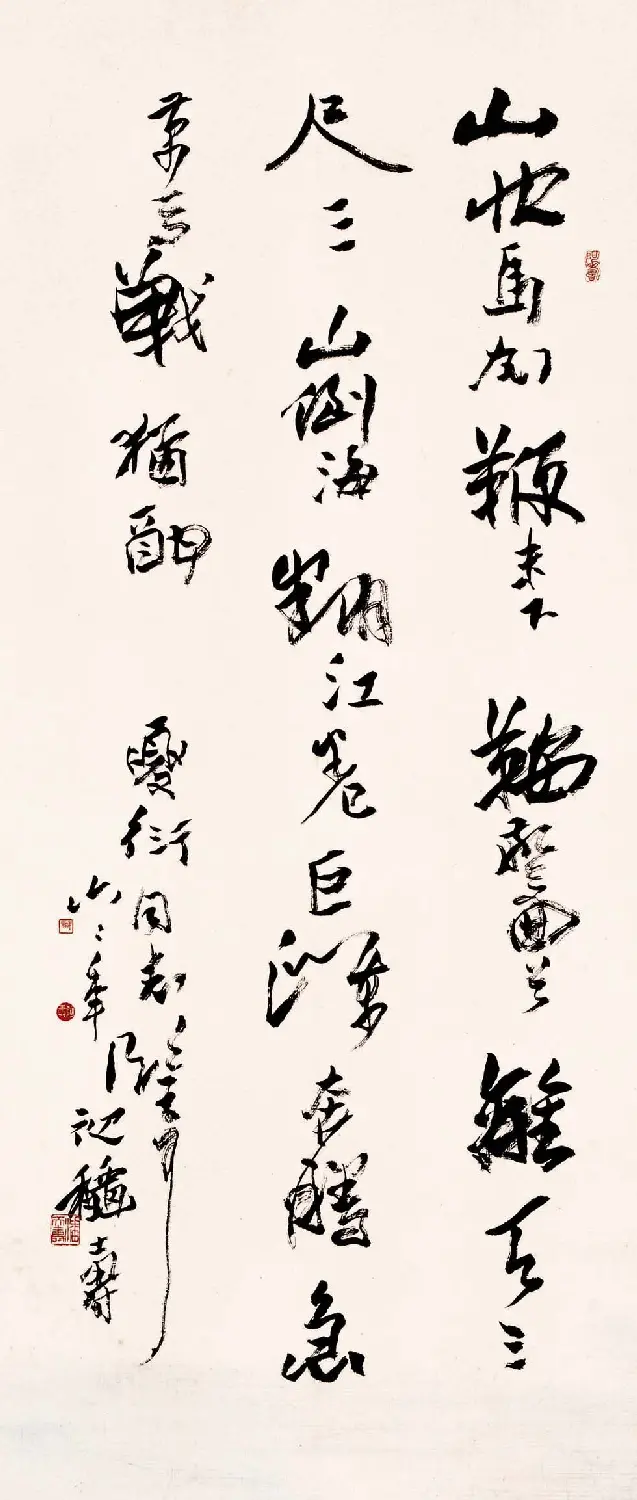 山快馬加鞭未下鞍驚回首離天三
尺三山倒海翻江卷巨瀾奔騰急
萬馬戰猶酣 夏衍同志
六二年初穐壽